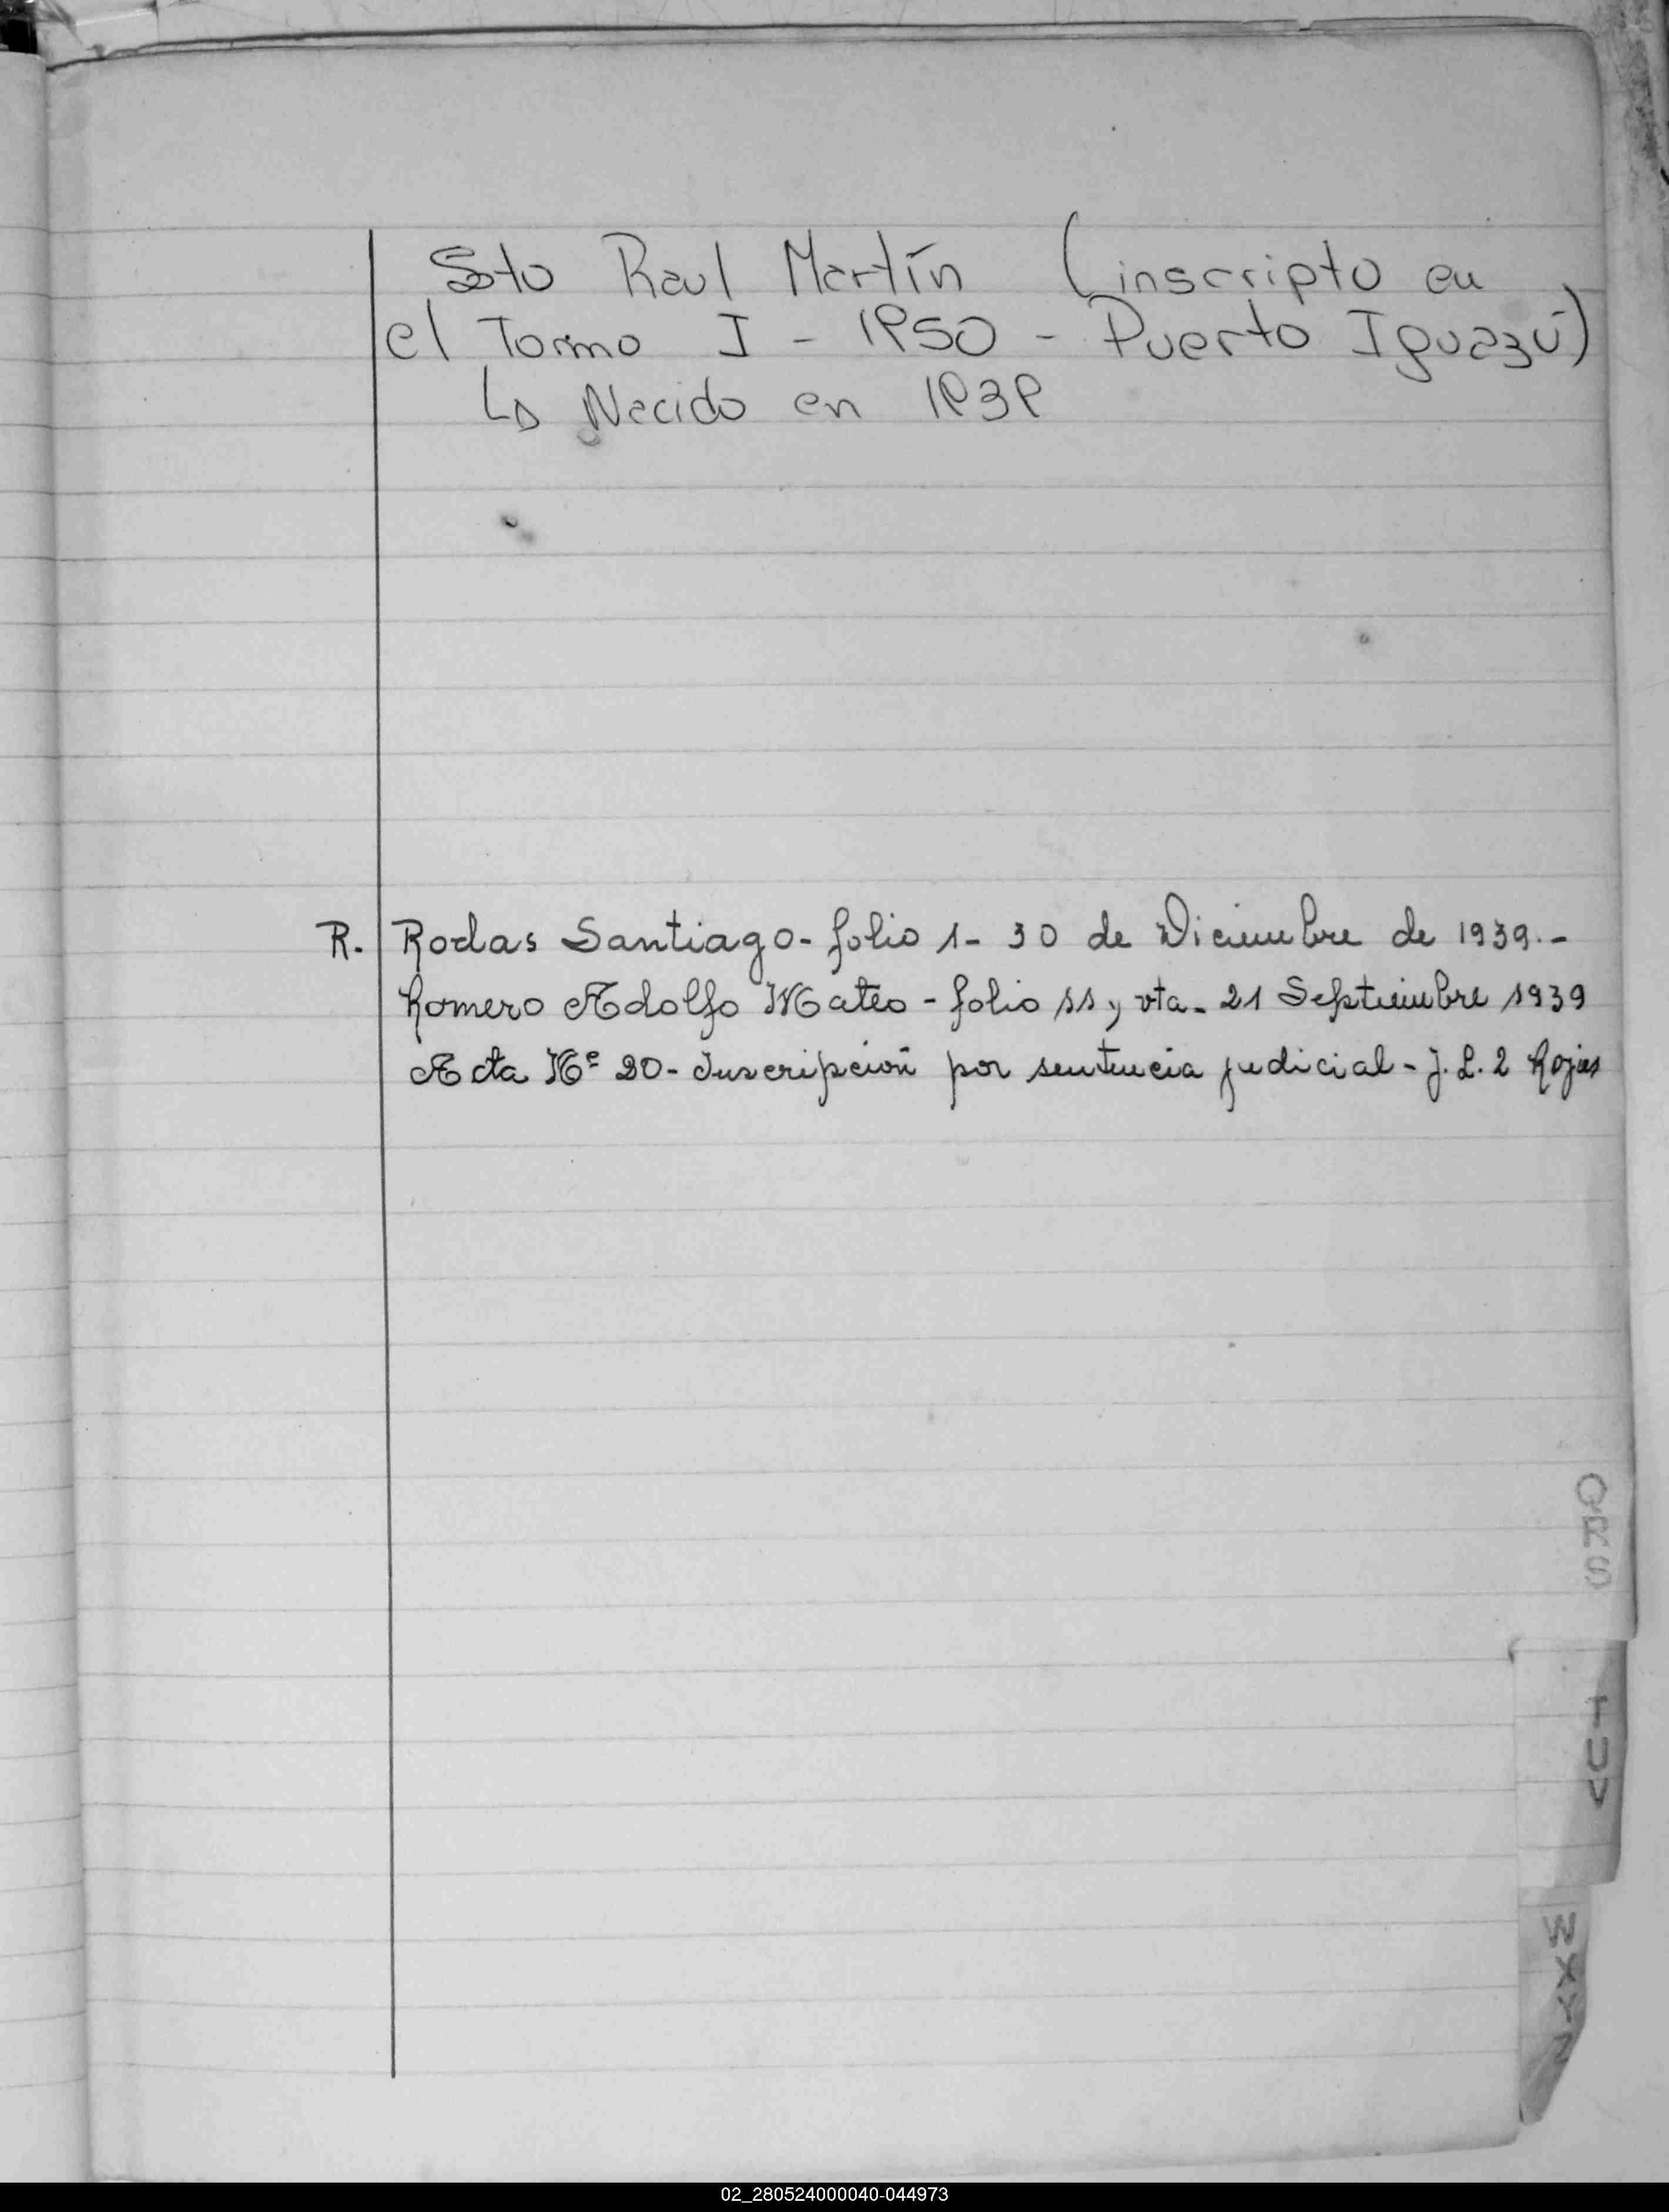 Soto Raul Martín (inscripto en
el Tomo I - 1950 - Puerto Iguazú)
↳ Nacido en 1939
R. Rodas Santiago - folio 1 - 30 de Diciembre de 1939.-
Romero Adolfo Mateo - folio 11 y vta - 21 Septiembre 1939
Acta Nº 20 - Inscripción por sentencia judicial - J. L. 2 Rojas
QRS
TUV
WXYZ
02_280524000040-044973